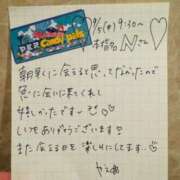 9/5(木) 9:30～
本指名 Nさん
PEZ Candy pals
朝早くに会えると思ってなかったので
急に会いに来てくれて
嬉しかったですぅ♡
いつもありがとうございます!!
また会える日を楽しみにしてます。♡